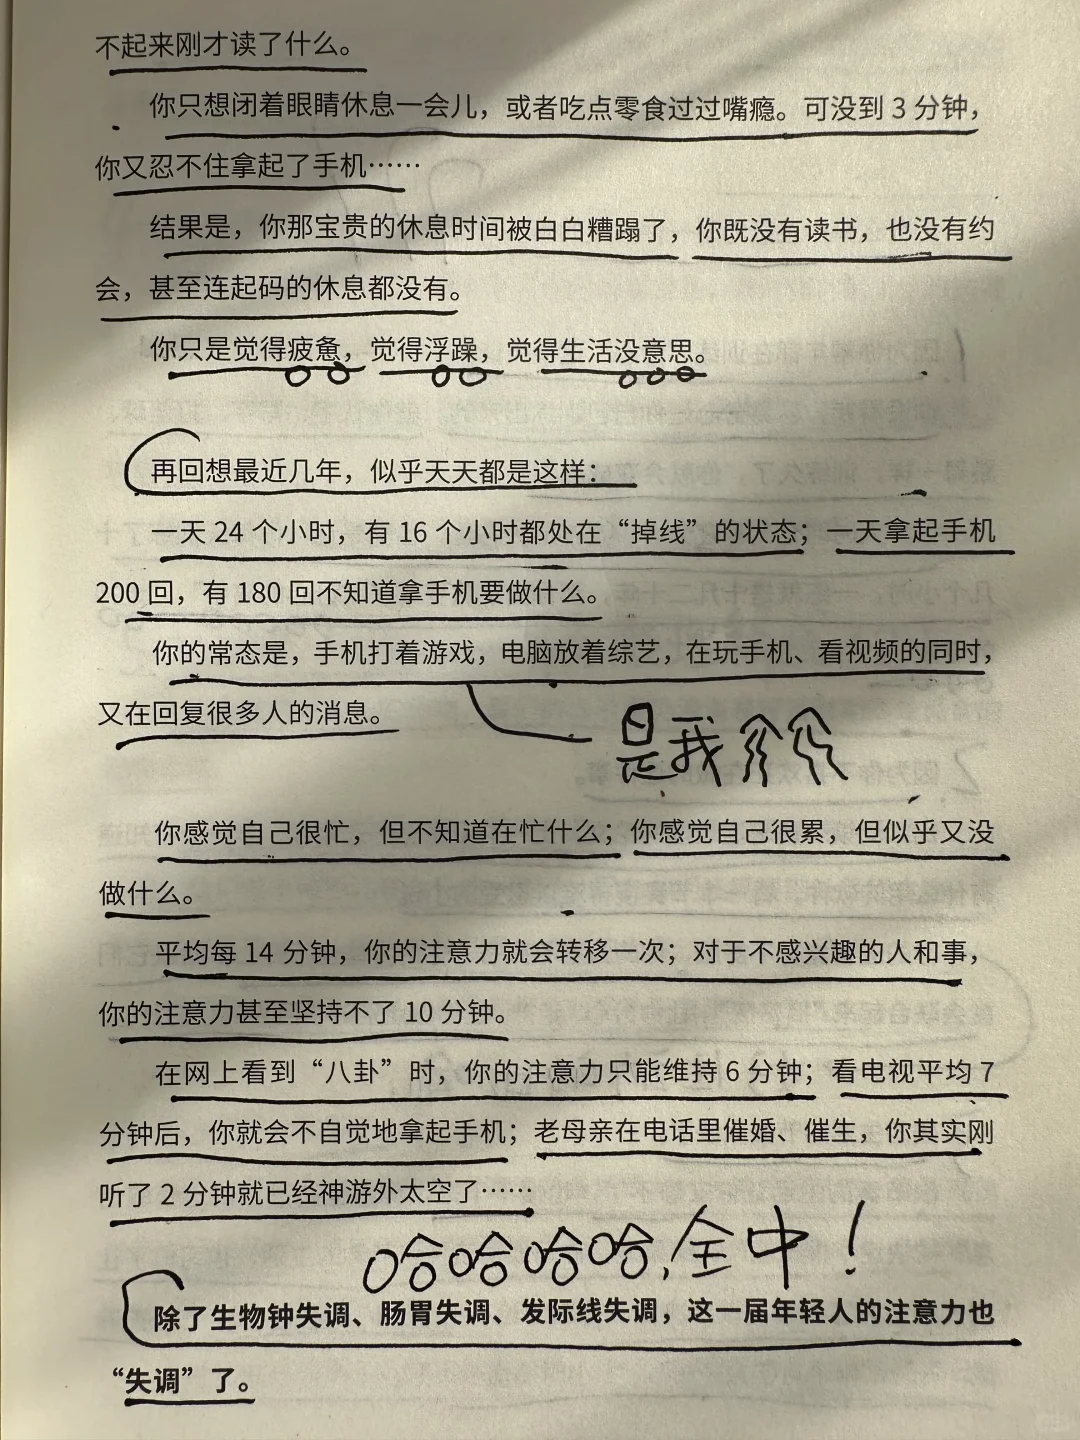 不起来刚才读了什么。
你只想闭着眼睛休息一会儿，或者吃点零食过过嘴瘾。可没到 3 分钟，
你又忍不住拿起了手机……
结果是，你那宝贵的休息时间被白白糟蹋了，你既没有读书，也没有约
会，甚至连起码的休息都没有。
你只是觉得疲惫，觉得浮躁，觉得生活没意思。
再回想最近几年，似乎天天都是这样：
一天 24 个小时，有 16 个小时都处在“掉线”的状态；一天拿起手机
200 回，有 180 回不知道拿手机要做什么。
你的常态是，手机打着游戏，电脑放着综艺，在玩手机、看视频的同时，
又在回复很多人的消息。
是我
你感觉自己很忙，但不知道在忙什么；你感觉自己很累，但似乎又没
做什么。
平均每 14 分钟，你的注意力就会转移一次；对于不感兴趣的人和事，
你的注意力甚至坚持不了 10 分钟。
在网上看到“八卦”时，你的注意力只能维持 6 分钟；看电视平均 7
分钟后，你就会不自觉地拿起手机；老母亲在电话里催婚、催生，你其实刚
听了 2 分钟就已经神游外太空了……
哈哈哈哈，全中！
除了生物钟失调、肠胃失调、发际线失调，这一届年轻人的注意力也
“失调”了。